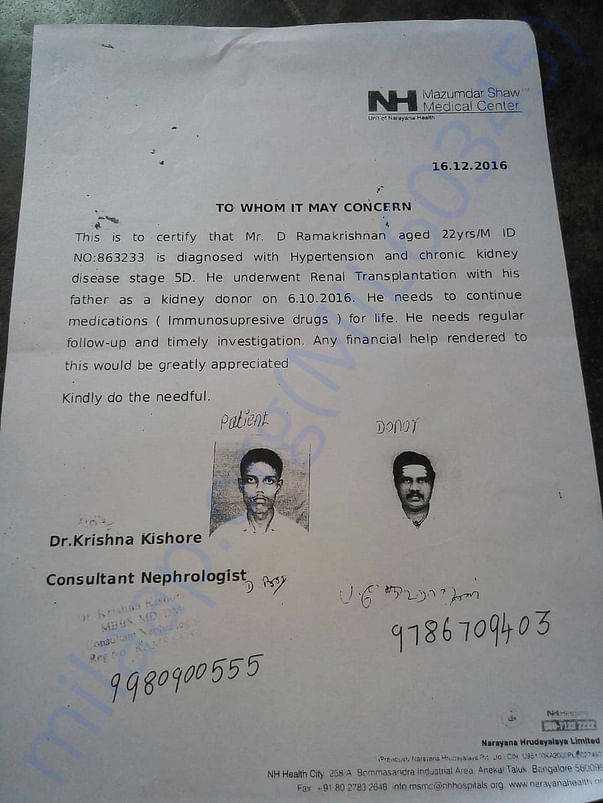 NH Mazumdar Shaw
Medical Center
Unit of Narayana Health
16.12.2016
TO WHOM IT MAY CONCERN
This is to certify that Mr. D Ramakrishnan aged 22yrs/M ID
NO:863233 is diagnosed with Hypertension and chronic kidney
disease stage 5D. He underwent Renal Transplantation with his
father as a kidney donor on 6.10.2016. He needs to continue
medications ( Immunosupresive drugs ) for life. He needs regular
follow-up and timely investigation. Any financial help rendered to
this would be greatly appreciated
Kindly do the needful.
Patient
Donor
Dr.Krishna Kishore
Consultant Nephrologist
Dr. Krishna Kishore
MBBS, MD, DM
Consultant Nephrologist
9786709403
9980900555
Narayana Hrudayalaya Limited
NH Health City, 258/A, Bommasandra Industrial Area, Anekal Taluk, Bangalore 560099
Fax +91 80 2783 2648 info.msmc@nhhospitals.org www.narayanahealth
milaap.org(MILL603345)